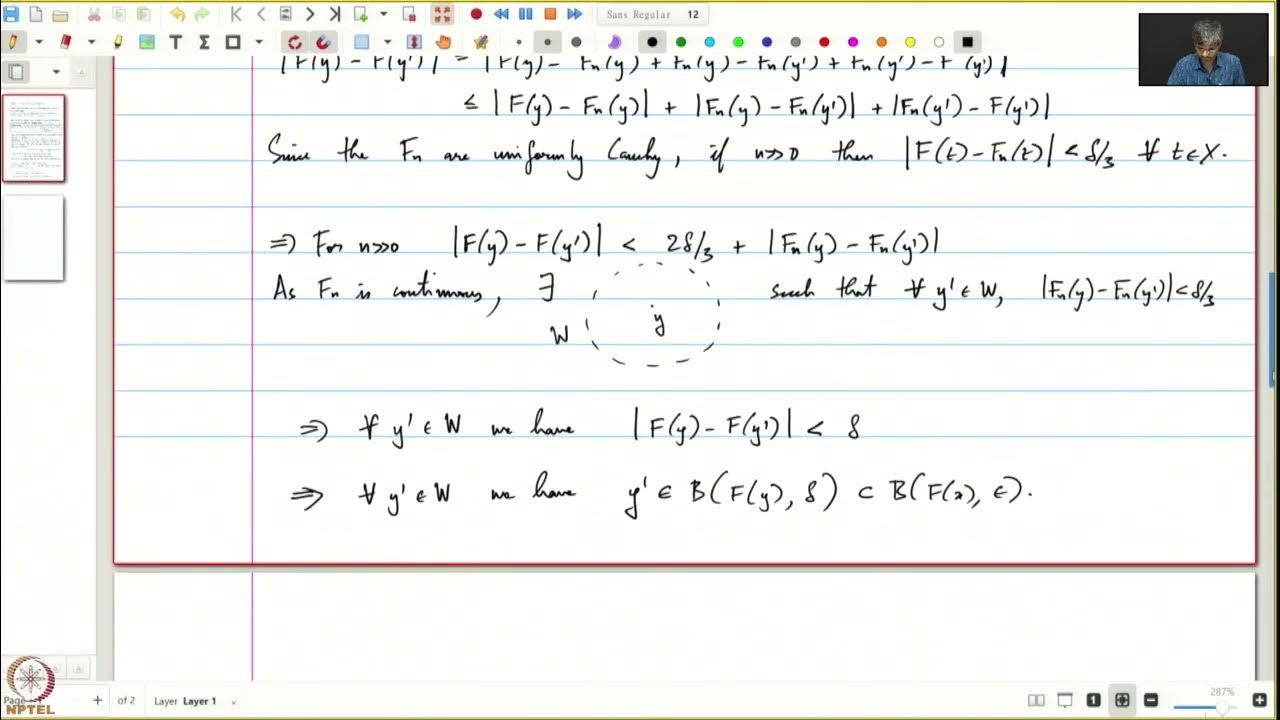 Sans Regular 12
|F(y) - F(y')| = |F(y) - Fn(y) + Fn(y) - Fn(y') + Fn(y') - F(y')|
≤ |F(y) - Fn(y)| + |Fn(y) - Fn(y')| + |Fn(y') - F(y')|
Since the Fn are uniformly Cauchy, if n>>0 then |F(t) - Fn(t)| < δ/3 ∀ t ∈ X.
⇒ For n>>0 |F(y) - F(y')| < 2δ/3 + |Fn(y) - Fn(y')|
As Fn is continuous, ∃ such that ∀ y' ∈ W, |Fn(y) - Fn(y')| < δ/3
W y
⇒ ∀ y' ∈ W we have |F(y) - F(y')| < δ
⇒ ∀ y' ∈ W we have y' ∈ B(F(y), δ) ⊂ B(F(x), ε).
NPTEL
Page of 2 Layer Layer 1 287%